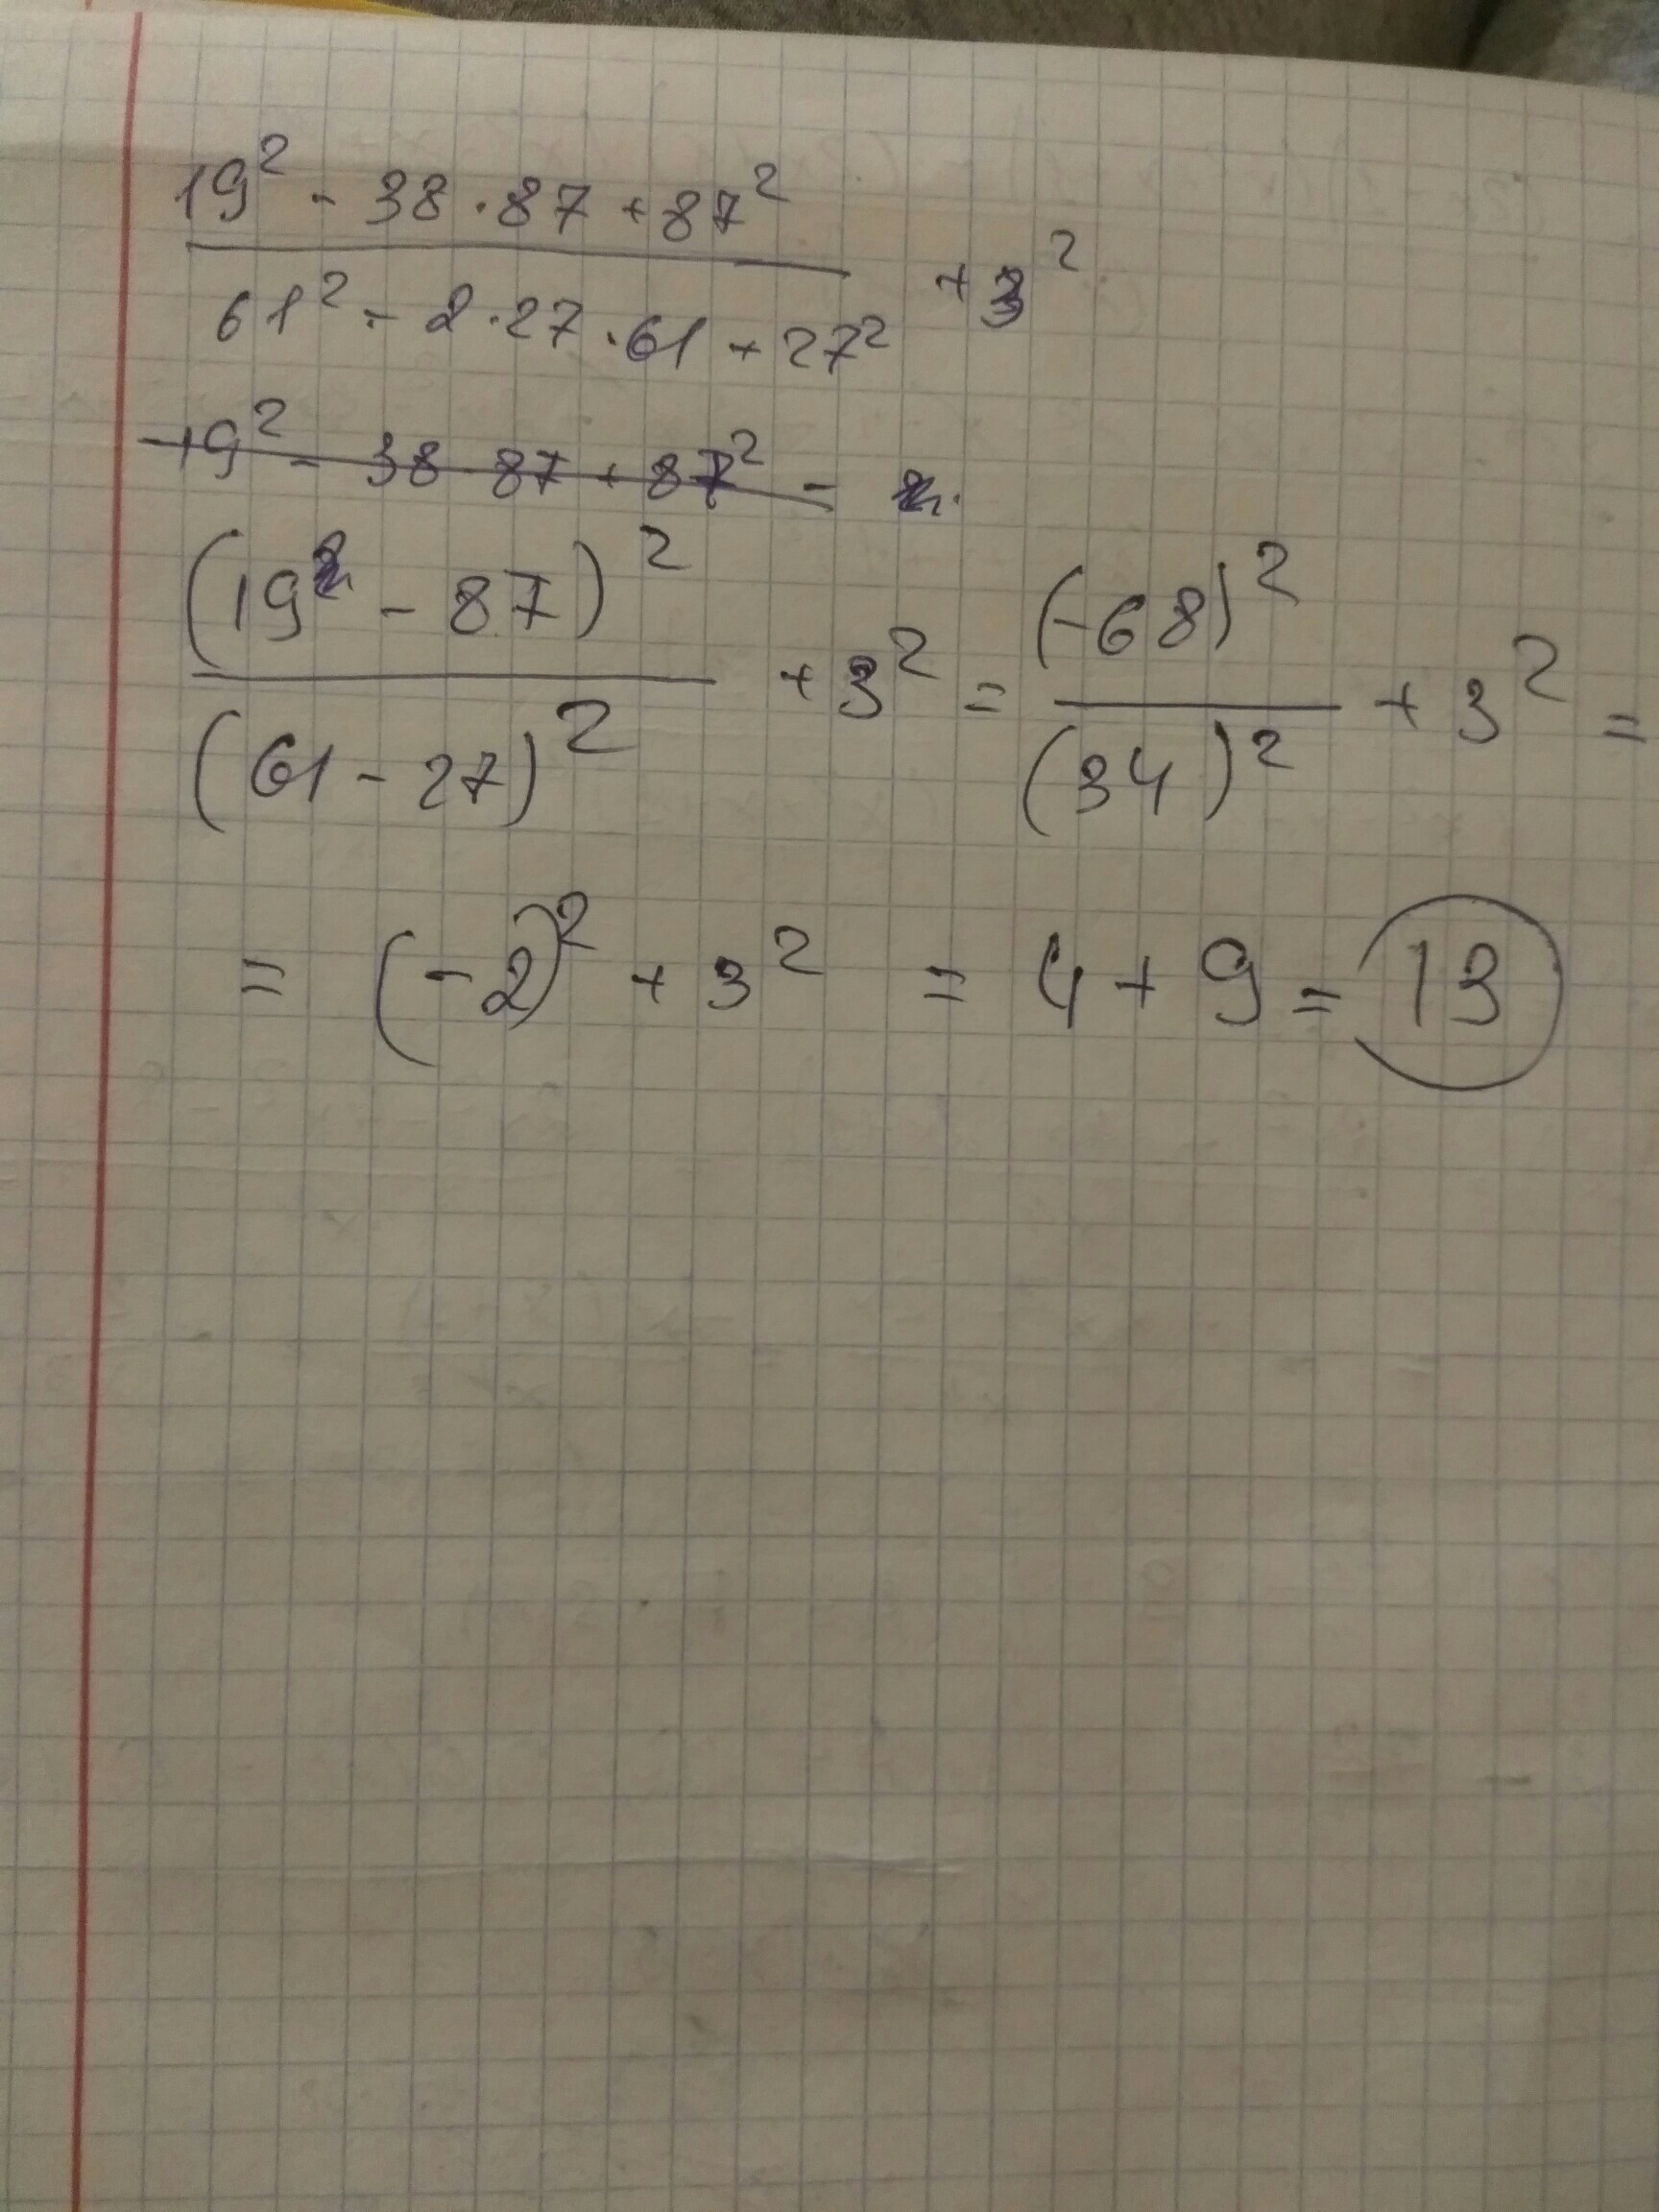 19² - 38 · 87 + 87²
61² - 2 · 27 · 61 + 27² + 3²
19² - 38 · 87 + 87² =
(19 - 87)²
(61 - 27)² + 3² = (-68)² / (34)² + 3² =
= (-2)² + 3² = 4 + 9 = 13